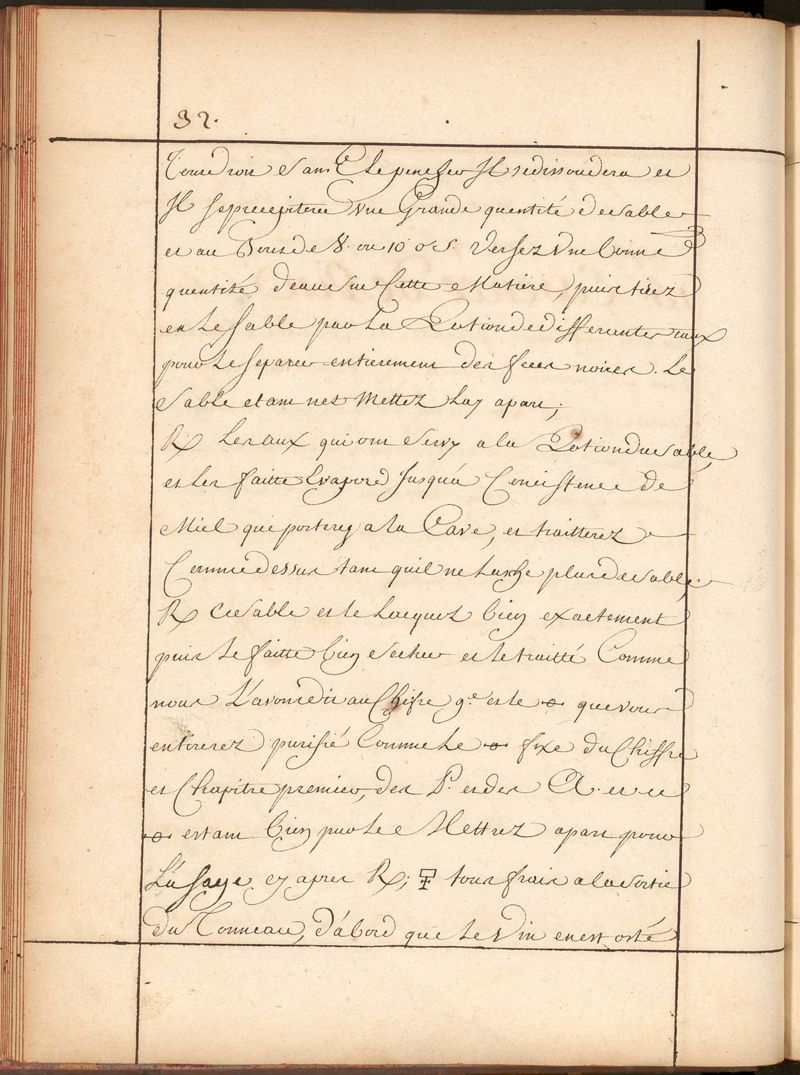 32.
dans Il se dissoudera et
Il se precipitera vne Grande quantité de sable
et au Bout de 8. ou 10 Versez Vne bonne
quentité deaue sur Cette Matiere, puis tirez
en le sable par La Lotion de differentes eaux
pour le separer entierement des feces noires. Le
sable etant net Mettez Luy apart,
℞ Les aux qui ont servy a la Lotion du sable,
et les faitte Evaporé Jusqu'a Concistence de
Miel que porterez a la Cave, et traitterez
Comme dessus tant quil ne Lasche plus de sable,
℞ Ce sable et le bien exactement
puis Le faitte bien secher et le traitté Comme
nous L'avons dit au Chifre 9.e et le 🜔 que vous
en tirerez purifié Comme Le 🜔 fixe du Chiffre
et Chapitre premier, des P. et des A. et ce
🜔 estant bien pur Le Mettrez apart pour
L'usage cy apres ℞; 🜿 tout frais a la sortie
du Tonneau, d'abord que Le Vin en est osté